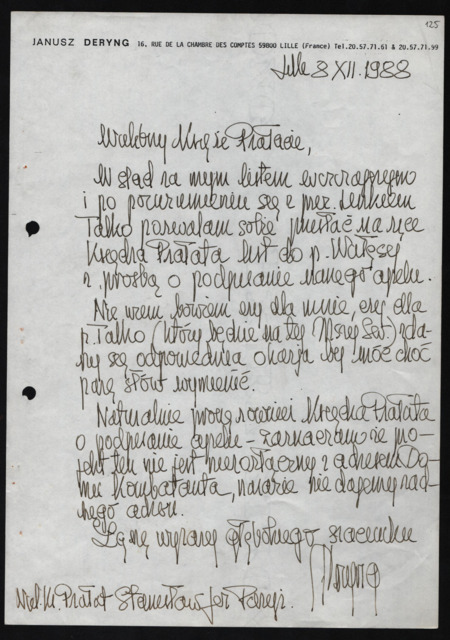 125
JANUSZ DERYNG 16, RUE DE LA CHAMBRE DES COMPTES 59800 LILLE (France) Tel.20.57.71.61 & 20.57.71.99
Lille 8 XII. 1988
Wielebny Księże Prałacie,
W ślad za mym listem wczorajszym
i po porozumieniu się z prez.
Talko pozwalam sobie przesłać na ręce
Księdza Prałata list do p. Wałęsy
z prośbą o podpisanie naszego apelu.
Nie wiem bowiem czy dla mnie, czy dla
p. Talko (który będzie na tej Mszy Św.) zda-
rzy się odpowiednia okazja by móc choć
parę słów wymienić.
Naturalnie proszę również Księdza Prałata
o podpisanie apelu - zaznaczam że pro-
jekt ten nie jest z adresem Do-
mu Kombatanta, narazie nie dajemy żad-
nego adresu.
Łączę wyrazy głębokiego szacunku
Deryng
Wiel. Ks. Prałat Stanisław Jeż Paryż.